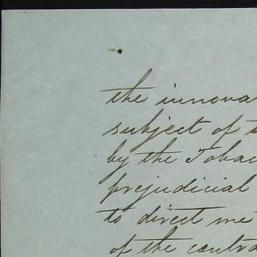 the innova
subject of
by the Tobac
prejudicial
to direct me
of the contra